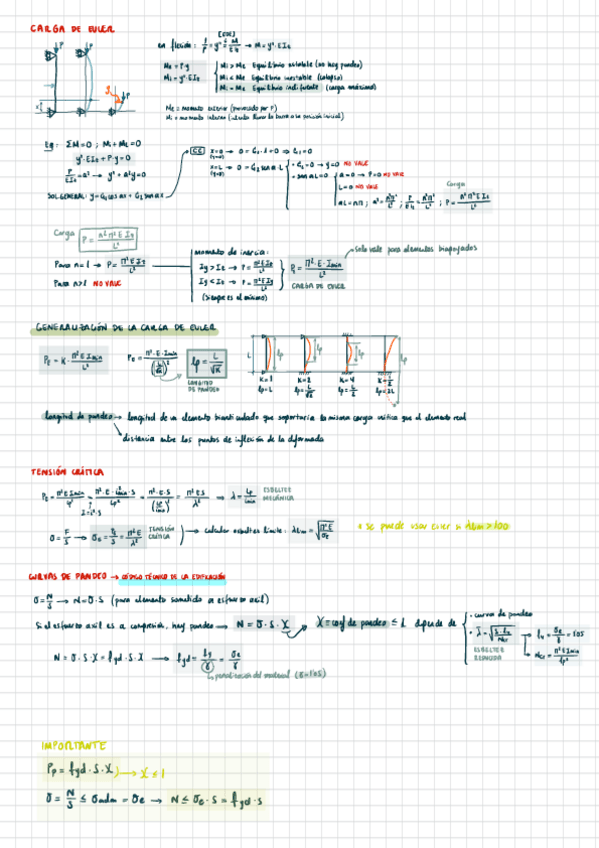 CARGA DE EULER
en flexión: 1/ρ = y'' = M/EI → M = y''·EIz
Me = P·y
Mi = y''·EIz
Mi > Me Equilibrio estable (no hay pandeo)
Mi < Me Equilibrio inestable (colapso)
Mi = Me Equilibrio indiferente (carga máxima)
Me = momento exterior (provocado por P)
Eq: ΣM = 0; Mi + Me = 0
y''·EIz + P·y = 0
P/EIz = a² → y'' + a²y = 0
SOL GENERAL: y = C1 cos ax + C2 sin ax
C.C.
x = 0
(y=0)
→ 0 = C1·1 + 0 ⇒ C1 = 0
x = L
(y=0)
→ 0 = C2 sin a·L
C2 = 0 → y = 0 NO VALE
sin aL = 0
a = 0 → P = 0 NO VALE
L = 0 NO VALE
Carga
P = n²π²EIz/L²
Carga
P = n²π²EIz/L²
Para n = 1 → P = π²EIz/L²
Para n > 1 NO VALE
momento de inercia:
Iy > Iz → P = π²EIz/L²
Iy < Iz → P = π²EIy/L²
(siempre es el mínimo)
PE = π²·E·Imin/L²
CARGA DE EULER
solo vale para elementos biapoyados
GENERALIZACIÓN DE LA CARGA DE EULER
PE = K·π²EImin/L²
PE = π²·E·Imin/(L/√K)²
lp = L/√K
LONGITUD
DE PANDEO
L
lp
lp
lp
lp
K = 1
lp = L
K = 2
lp = L/√2
K = 4
lp = L/2
lp = 2L
longitud de pandeo → longitud de un elemento biarticulado que soportaría la misma carga crítica que el elemento real
distancia entre los puntos de inflexión de la deformada
TENSIÓN CRÍTICA
→ λ = lp/imin
ESBELTEZ
MECÁNICA
I = i²·S
σ = F/S → σE = PE/S = π²E/λ²
TENSIÓN
CRÍTICA
→ calcular esbeltez límite: λlim = √(π²E/σe)
* se puede usar Euler si λlim > 100
CURVAS DE PANDEO → CÓDIGO TÉCNICO DE LA EDIFICACIÓN
σ = N/S → N = σ·S (para elemento sometido a esfuerzo axil)
Si el esfuerzo axil es a compresión, hay pandeo → N = σ·S·X
X = coef de pandeo ≤ 1 depende de
· curvas de pandeo
ESBELTEZ
REDUCIDA
N = σ·S·X = fyd·S·X → fyd = fy/γ = σe/γ
penalización del material (γ=1'05)
IMPORTANTE
Pp = fyd·S·X → X ≤ 1
σ = N/S ≤ σadm = σe → N ≤ σe·S = fyd·S